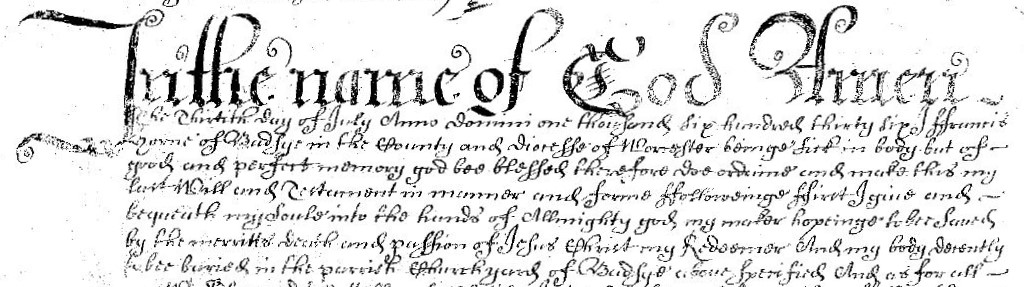 In the name of God Amen
The Thirtith day of July Anno Domini one thousand six hundred thirty six I ffrancis
Horne of Badsye in the County and Diocesse of Worcester beinge sick in body but of
good and perfect memory god bee blessed therefore doe ordaine and make this my
last Will and Testament in manner and forme ffollowinge ffirst I give and
bequeath my soule into the hands of Allmighty god my maker hopeinge to bee saved
by the merritts death and passion of Jesus Christ my Redeemer And my body decently
to bee buried in the parrish Churchyard of Badsye above specified And as for all